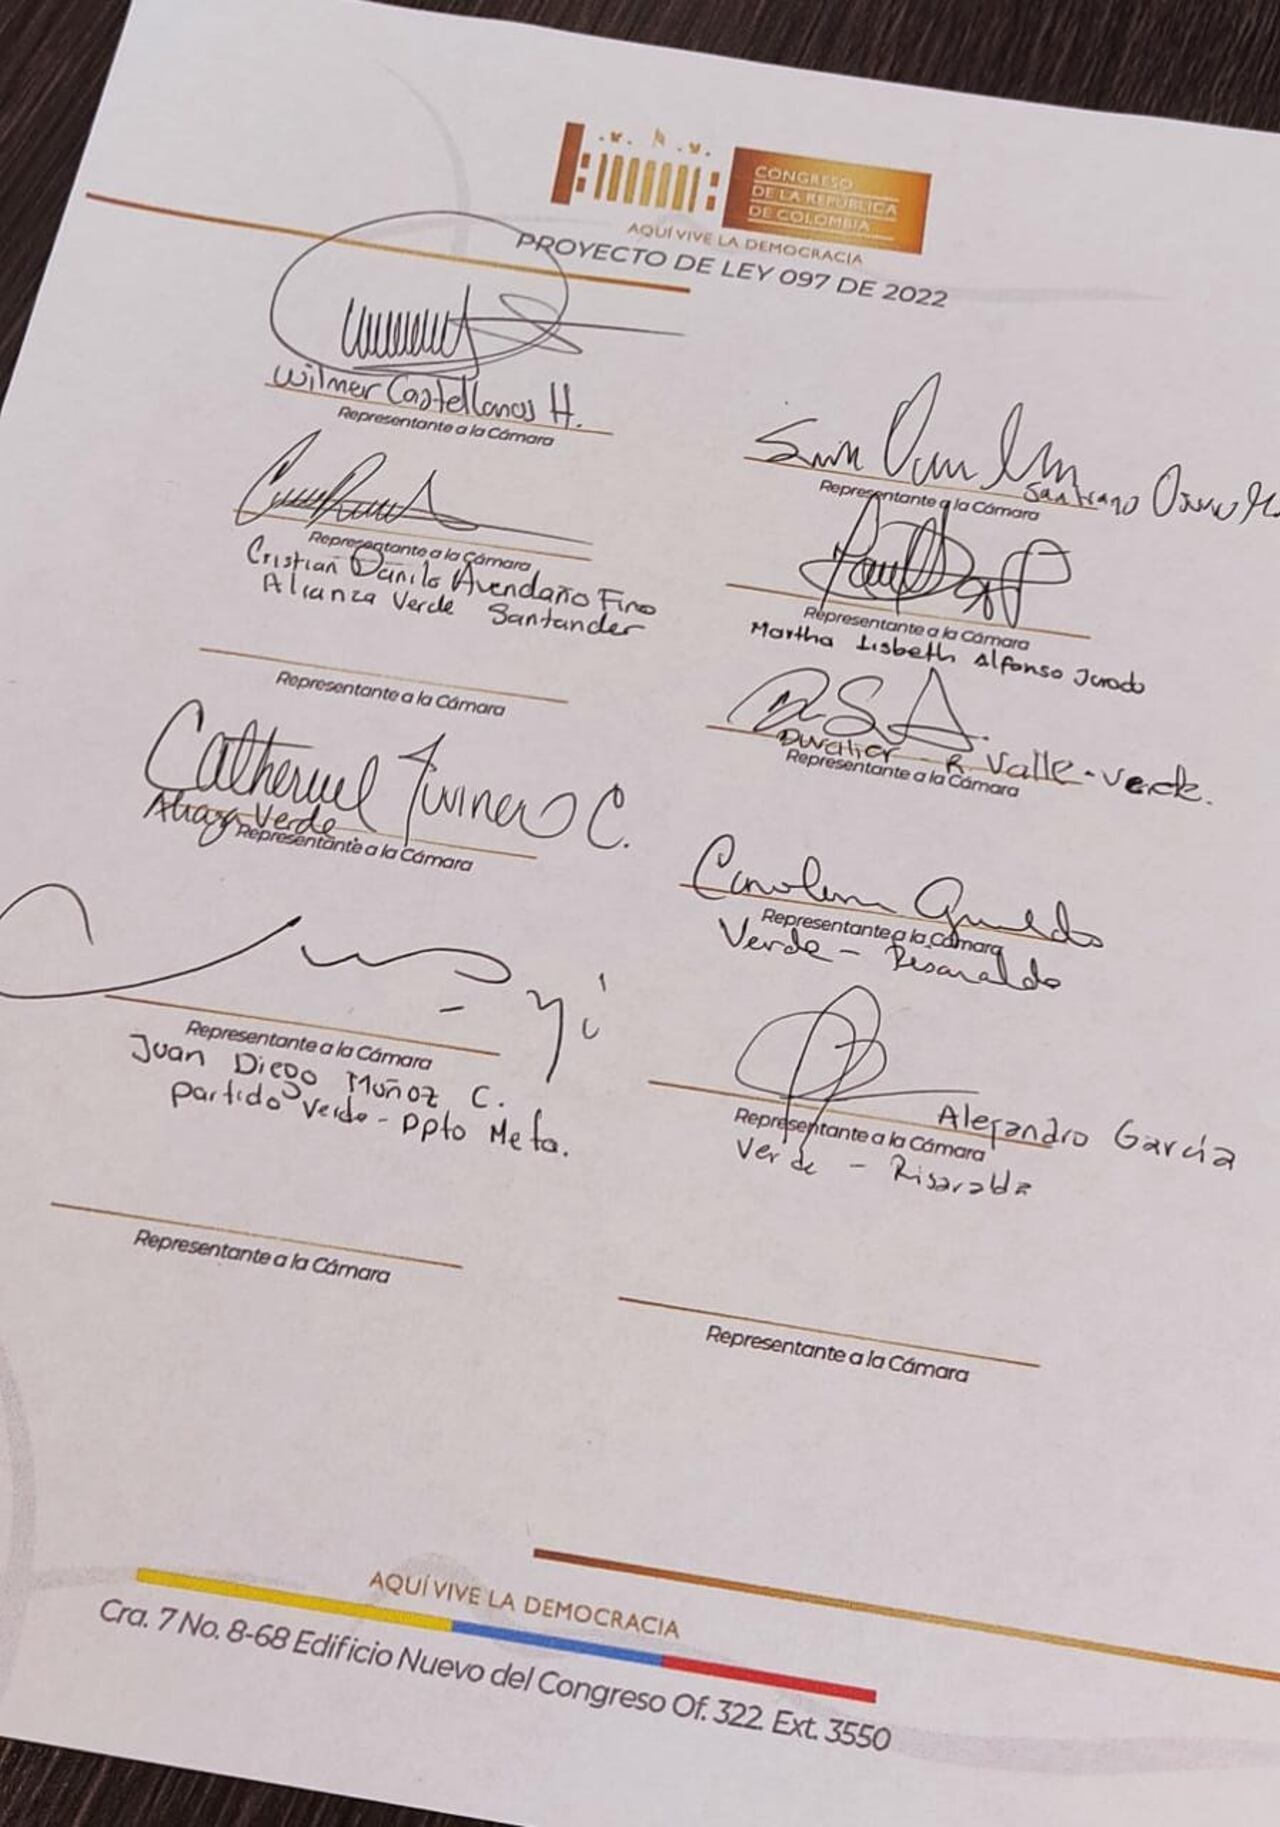 CONGRESO
DE LA REPÚBLICA
DE COLOMBIA
AQUÍ VIVE LA DEMOCRACIA
PROYECTO DE LEY 097 DE 2022
Wilmer Castellanos H.
Representante a la Cámara
Representante a la Cámara
Santiago
Representante a la Cámara
Cristian Danilo Avendaño Fino
Alianza Verde Santander
Representante a la Cámara
Martha Lisbeth Alfonso Jurado
Representante a la Cámara
Duvalier R Valle - Verde.
Representante a la Cámara
Catherine Juvinao C.
Verde
Representante a la Cámara
Representante a la Cámara
Verde - Risaralda
Representante a la Cámara
Juan Diego Muñoz C.
Partido Verde - Dpto Meta.
Alejandro García
Representante a la Cámara
Verde - Risaralda
Representante a la Cámara
Representante a la Cámara
AQUÍ VIVE LA DEMOCRACIA
Cra. 7 No. 8-68 Edificio Nuevo del Congreso Of. 322. Ext. 3550